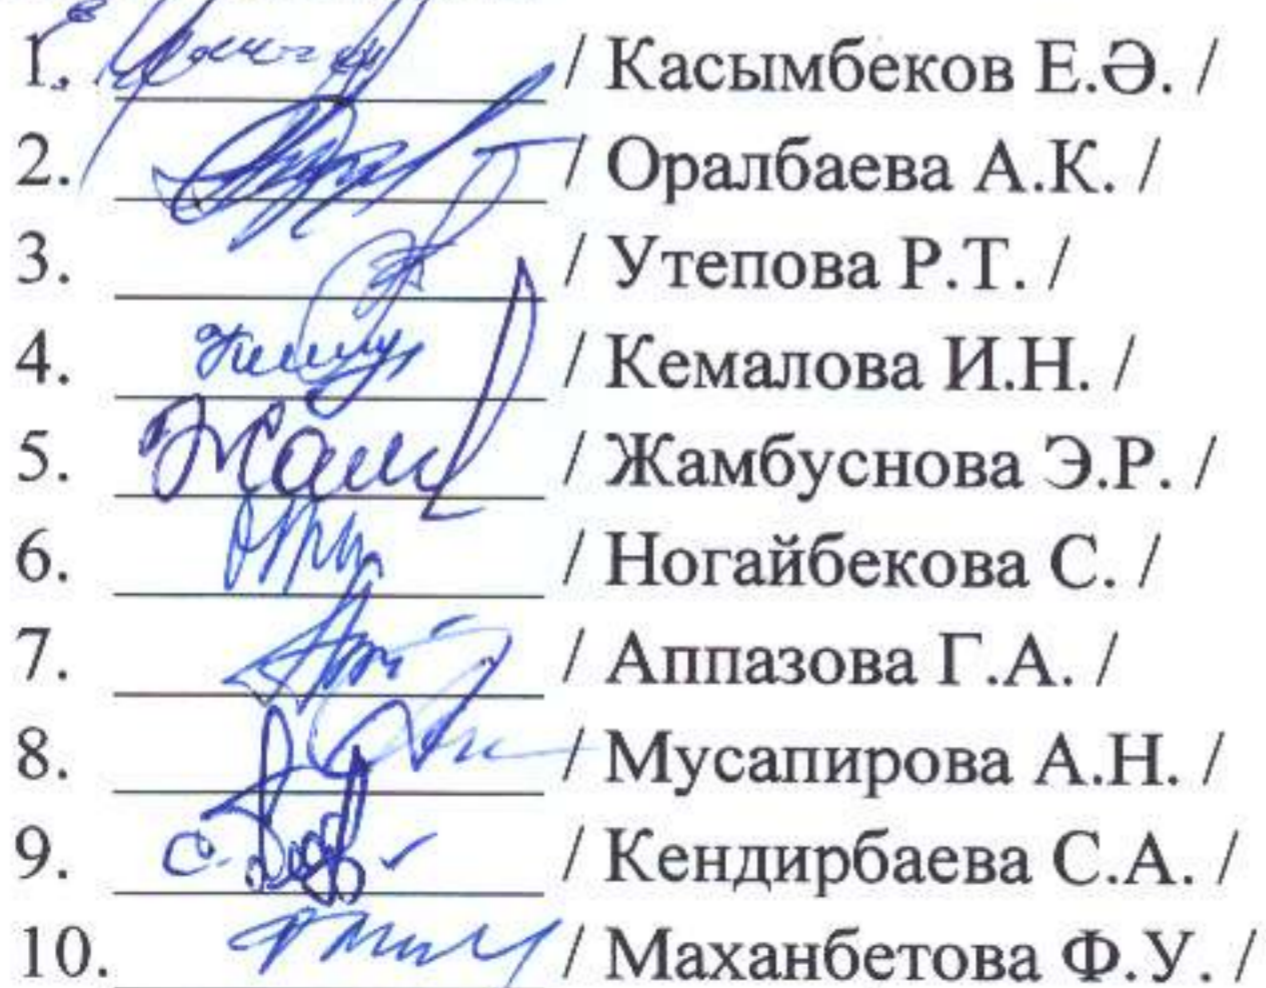 1. / Касымбеков Е.Ә. /
2. / Оралбаева А.К. /
3. / Утепова Р.Т. /
4. / Кемалова И.Н. /
5. / Жамбуснова Э.Р. /
6. / Ногайбекова С. /
7. / Аппазова Г.А. /
8. / Мусапирова А.Н. /
9. / Кендирбаева С.А. /
10. / Маханбетова Ф.У. /